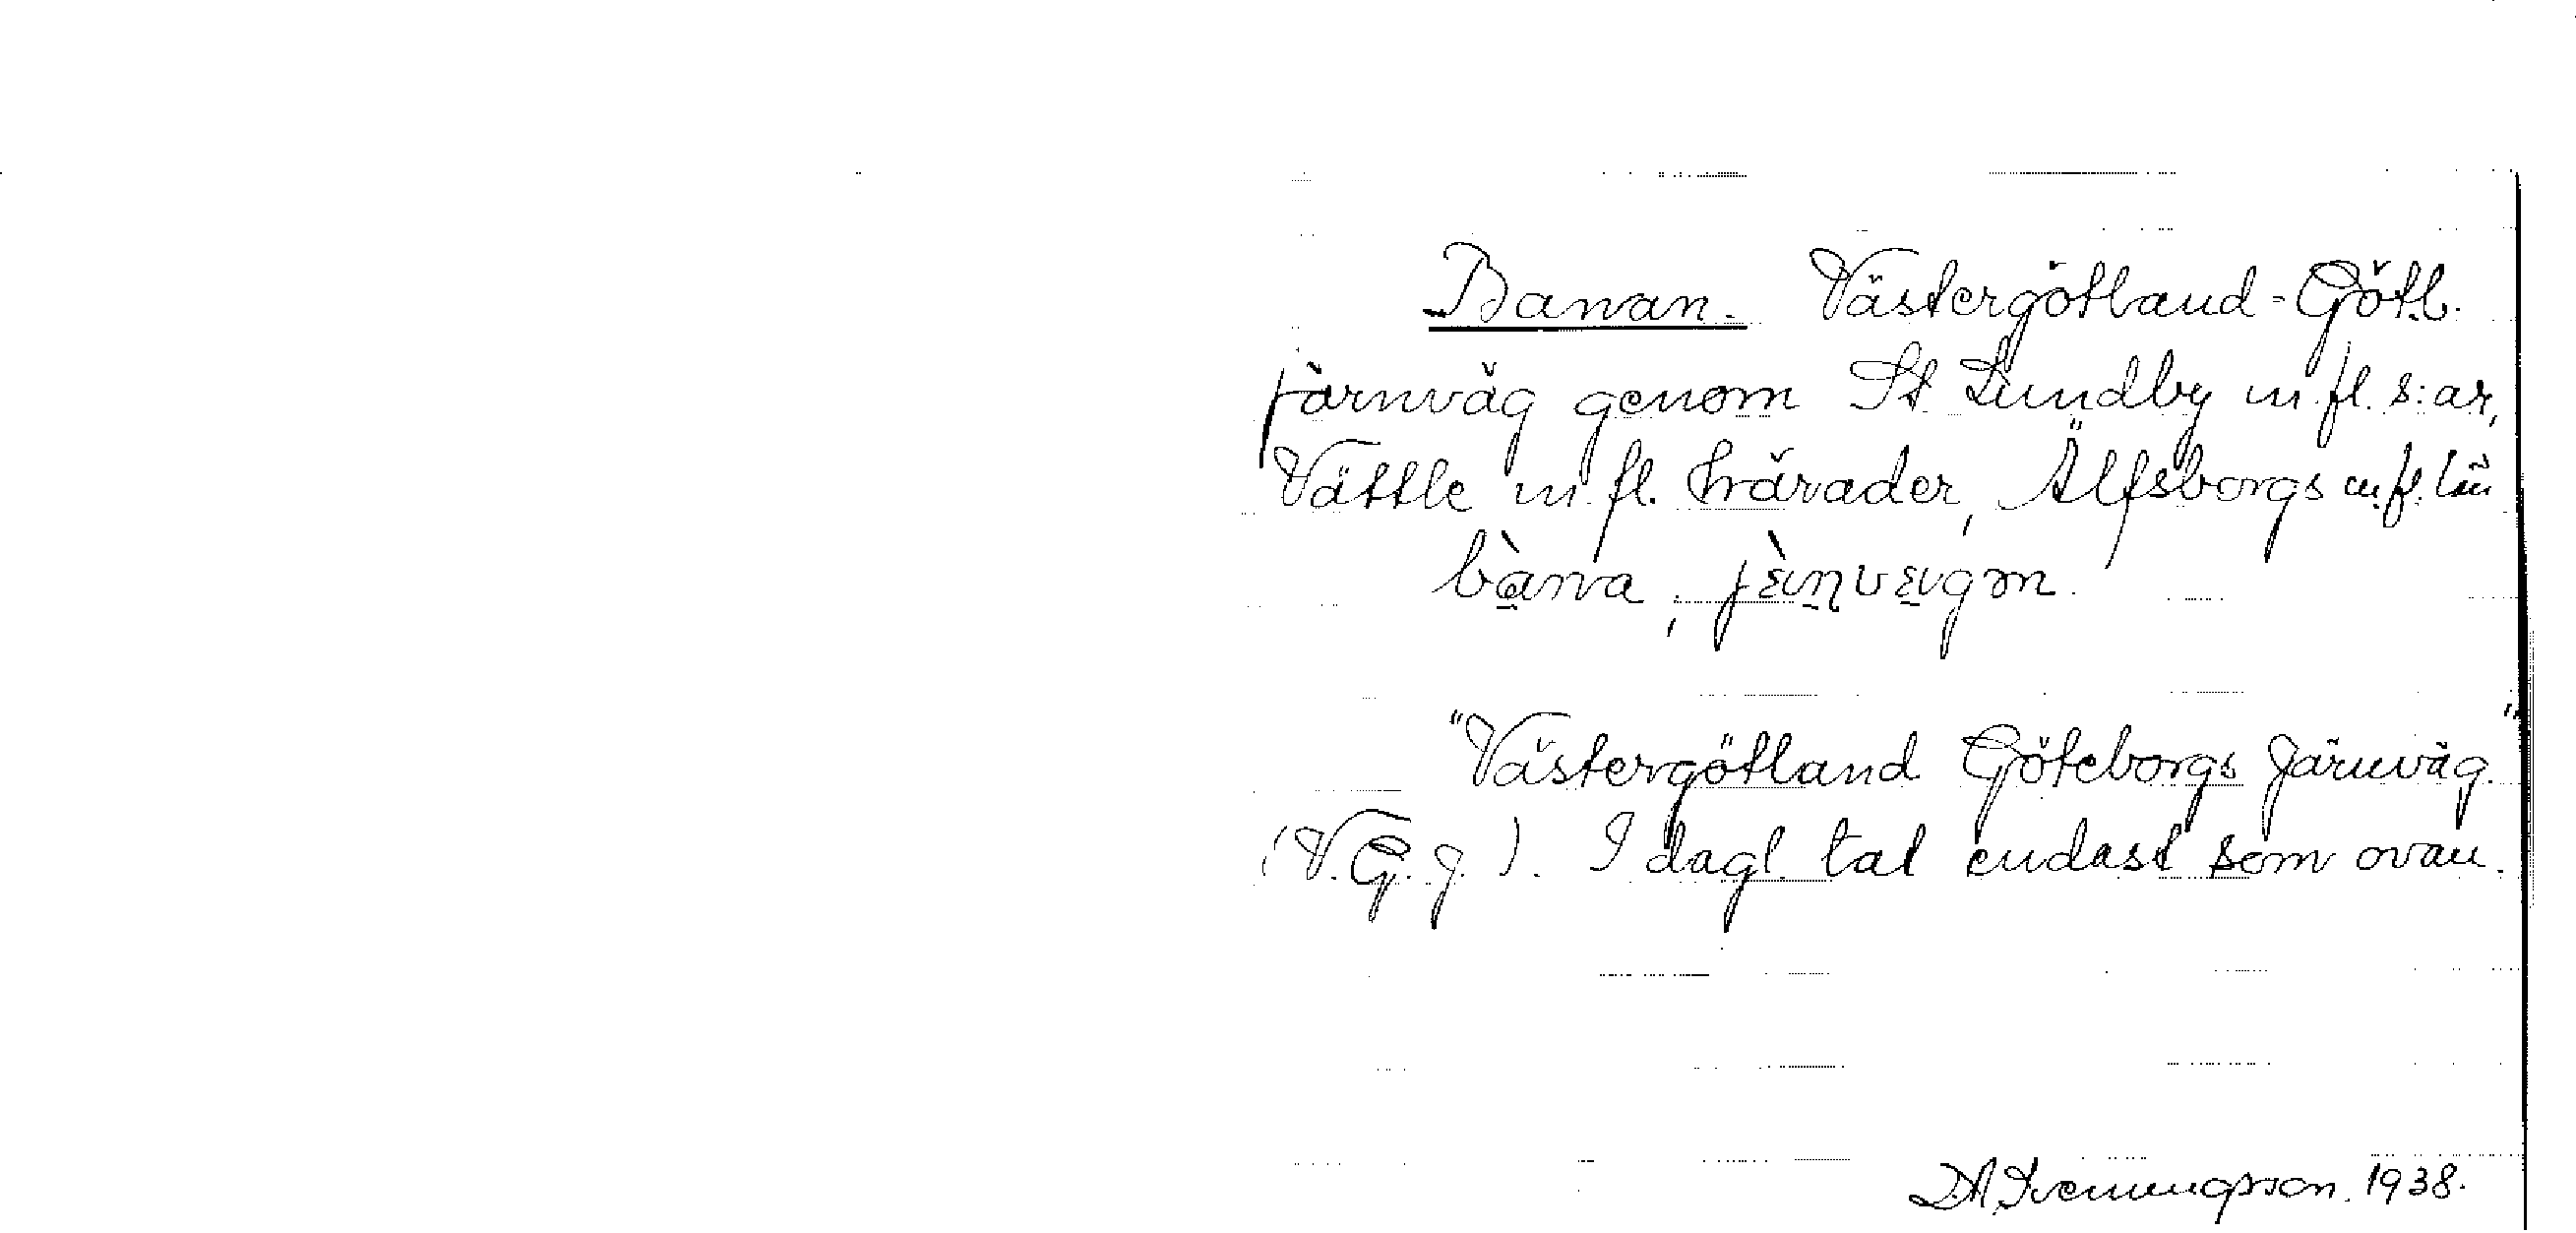 Banan. Västergötland-Götb.
järnväg genom St Lundby m. fl. s:ar,
Vättle m. fl. härader, Älfsborgs m. fl. län
bàna, jæ̀ɳvægən.
"Västergötland Göteborgs Järnväg."
(V.G.J.). I dagl. tal endast som ovan.
D.A. Svenningsson. 1938.